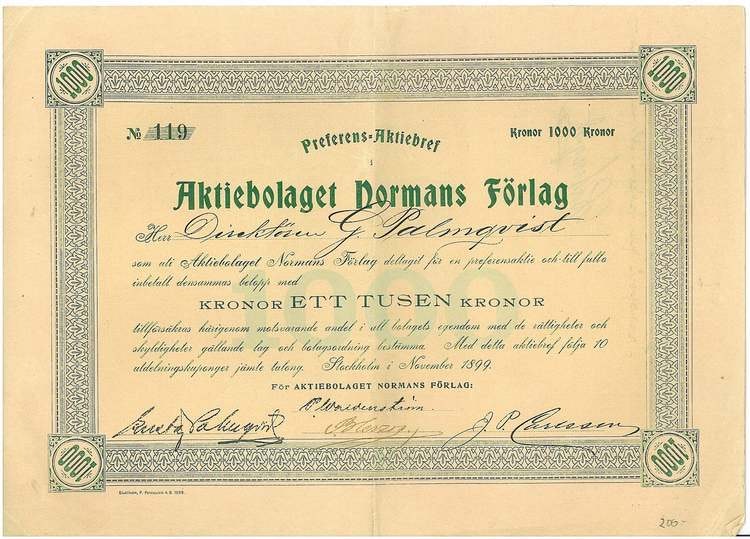 1000 1000
№ 119
Preferens-Aktiebref
Kronor 1000 Kronor
i
Aktiebolaget Normans Förlag
Herr Direktören G Palmqvist
som uti Aktiebolaget Normans Förlag deltagit för en preferensaktie och till fullo
inbetalt densammas belopp med
1000
KRONOR ETT TUSEN KRONOR
tillförsäkras härigenom motsvarande andel i all bolagets egendom med de rättigheter och
skyldigheter gällande lag och bolagsordning bestämma. Med detta aktiebref följa 10
utdelningskuponger jämte talong. Stockholm i November 1899.
För AKTIEBOLAGET NORMANS FÖRLAG:
P Waldenström.
Gustaf Palmqvist
J. P. Carlsson
1000 1000
200-